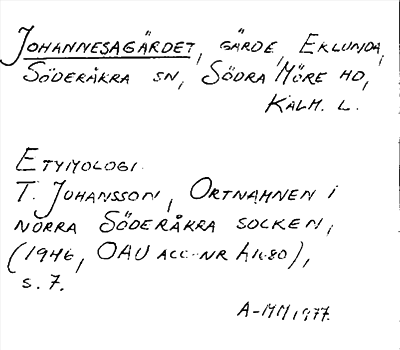 JOHANNESAGÄRDET, GÄRDE, EKLUNDA,
SÖDERÅKRA SN, SÖDRA MÖRE HD,
KALM. L.
ETYMOLOGI.
T. JOHANSSON, ORTNAMNEN I
NORRA SÖDERÅKRA SOCKEN,
(1946, OAU ACC-NR
S. 7.
A-MM 1977.